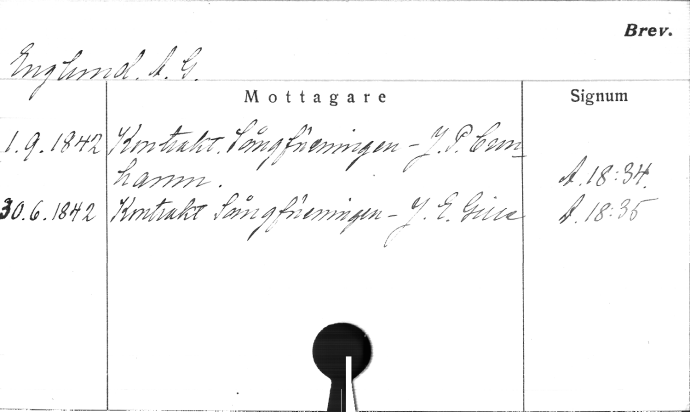 Brev.
Englund. A. G.
Mottagare Signum
1.9.1842 Kontrakt. Sångföreningen - J. P. Cron_
hamn. A. 18:34.
30.6.1842 Kontrakt Sångföreningen - J. E. A. 18:35